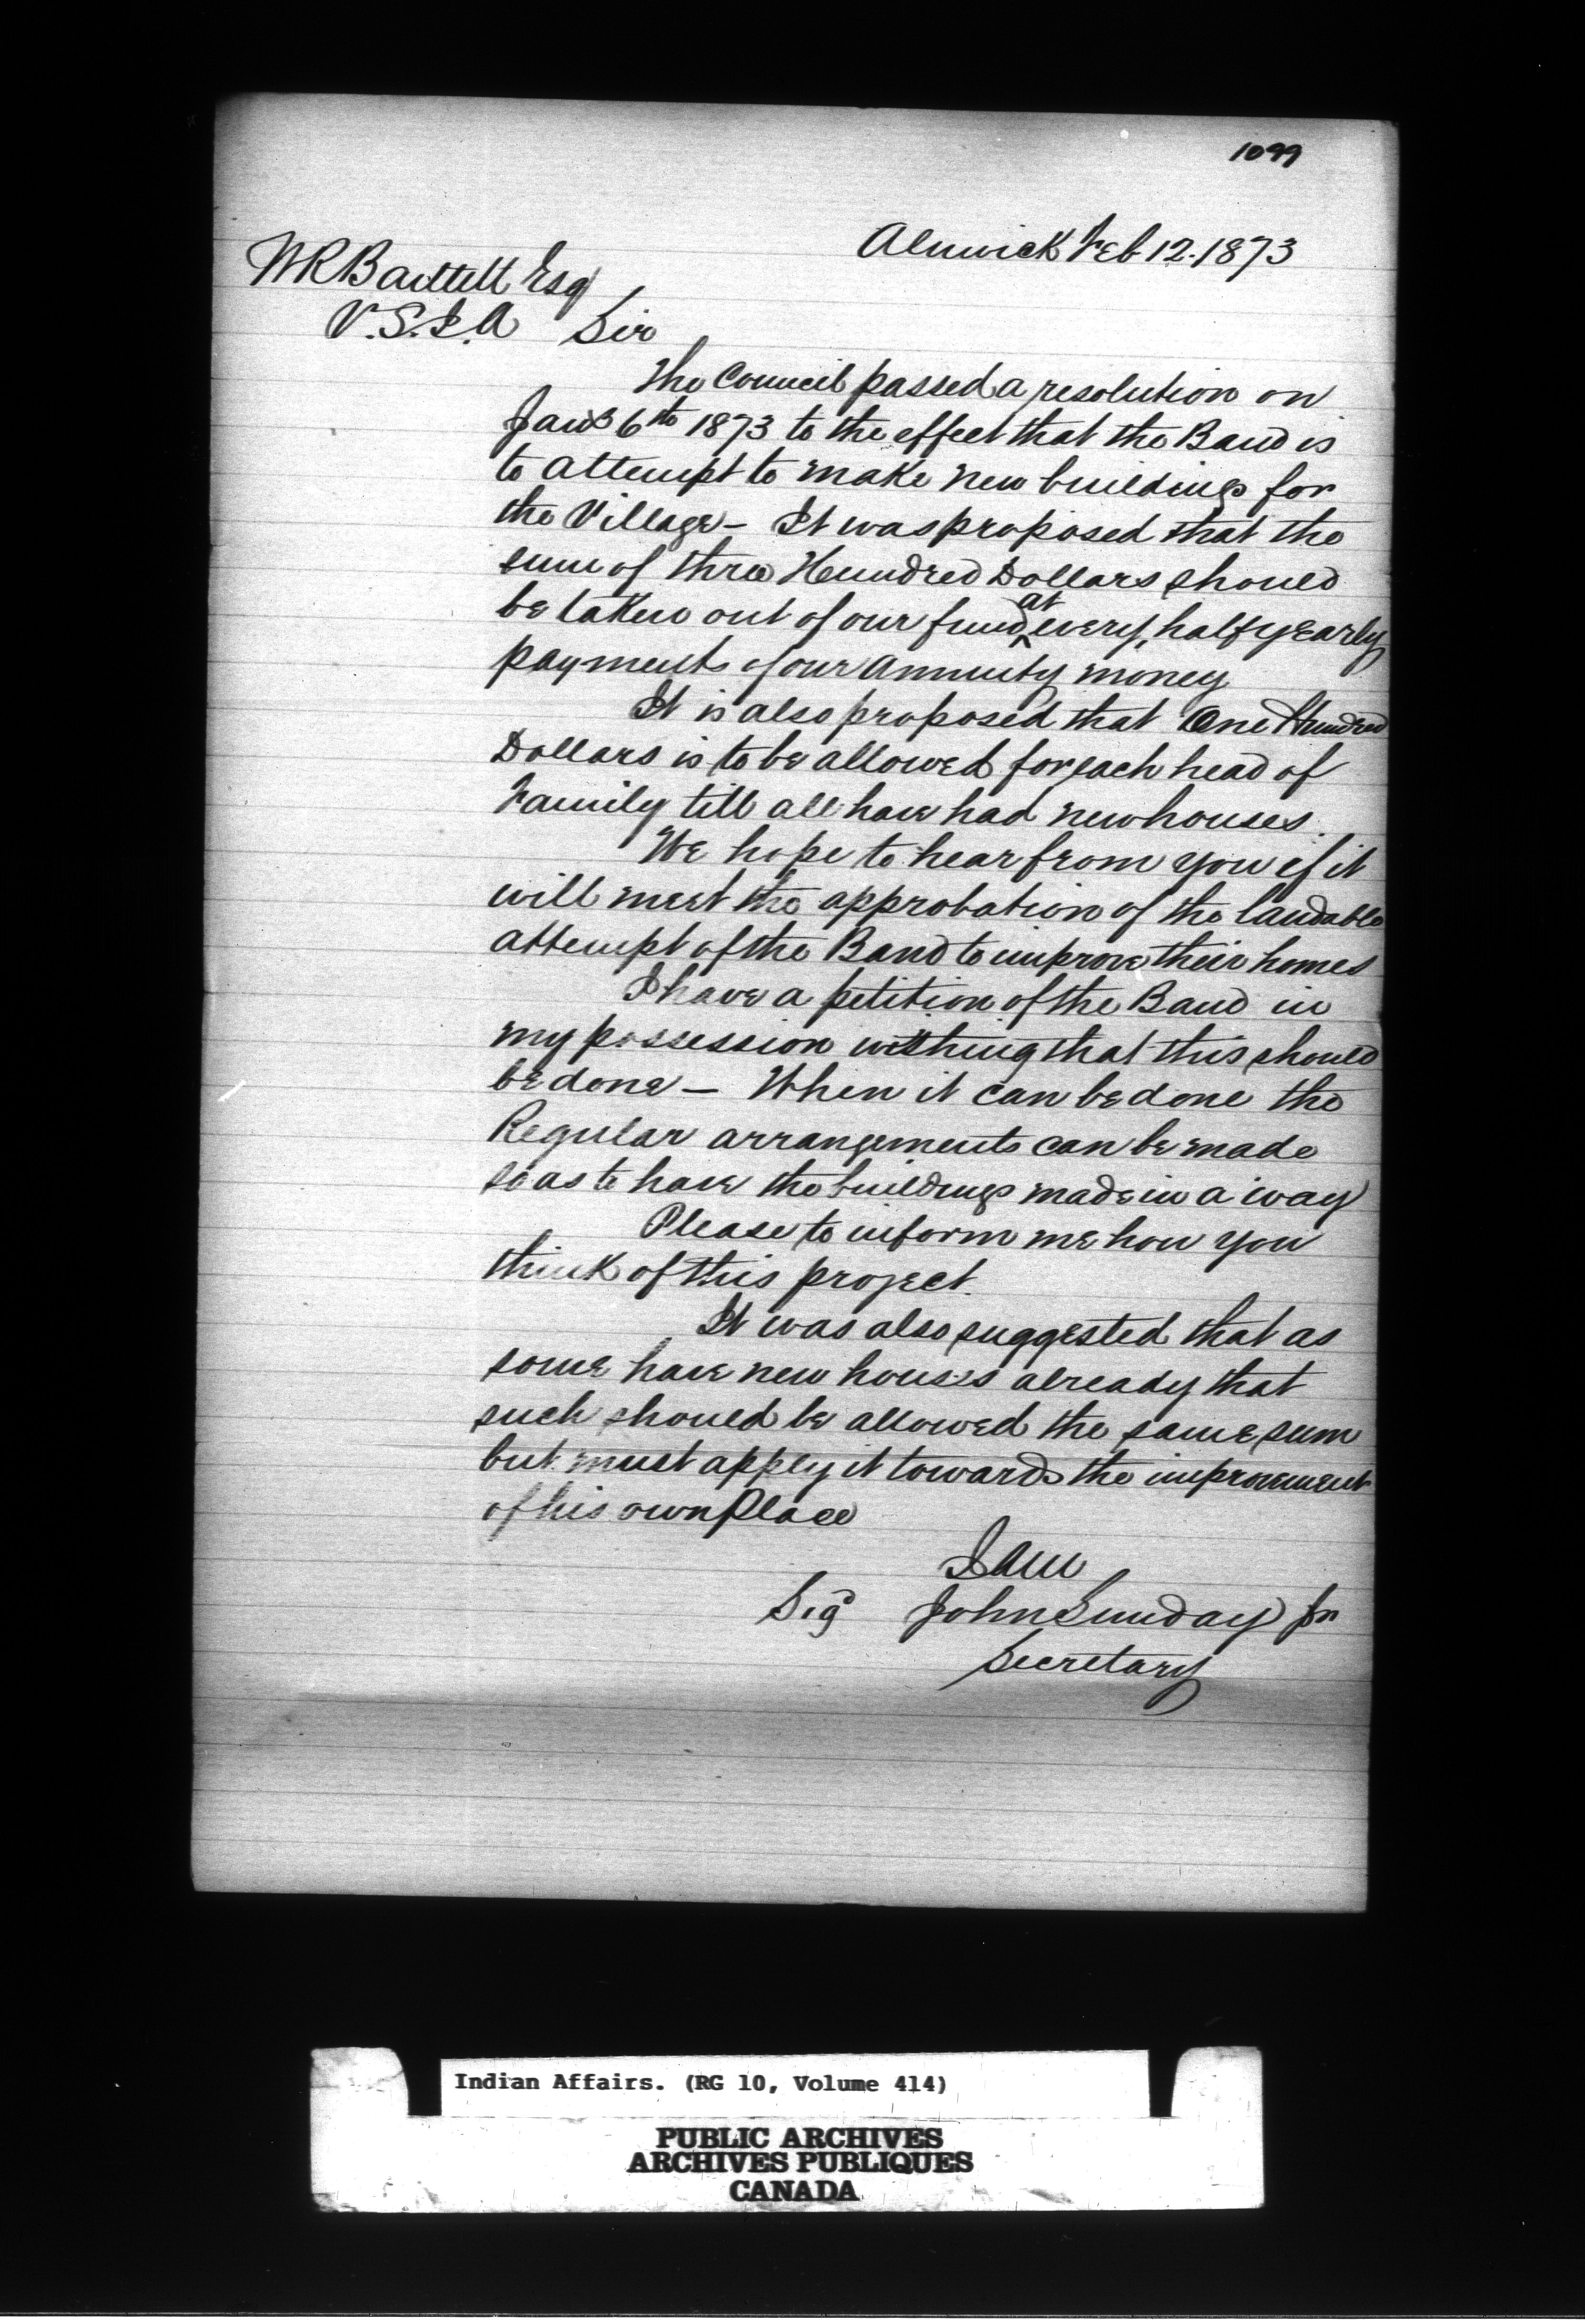 1099
Alnwick Feb 12. 1873
W R Bartlett Esq
V. S. I. A Sir
The Council passed a resolution on
6th 1873 to the effect that the Band is
to attempt to make new buildings for
the Village – It was proposed that the
sum of three Hundred Dollars should
be taken out of our fund at every half yearly
payments of our annuity money
It is also proposed that One Hundred
Dollars is to be allowed for each head of
Family till all have had new houses.
We hope to hear from you if it
will meet the approbation of the laudable
attempt of the Band to improve their homes
I have a petition of the Band in
my possession wishing that this should
be done – When it can be done the
Regular arrangements can be made
so as to have the buildings made in a way
Please to inform me how you
think of this project.
It was also suggested that as
some have new houses already that
such should be allowed the same sum
but must apply it towards the improvement
of his own Place
I am
Sigd John Sunday Jn
Secretary
Indian Affairs. (RG 10, Volume 414)
PUBLIC ARCHIVES
ARCHIVES PUBLIQUES
CANADA